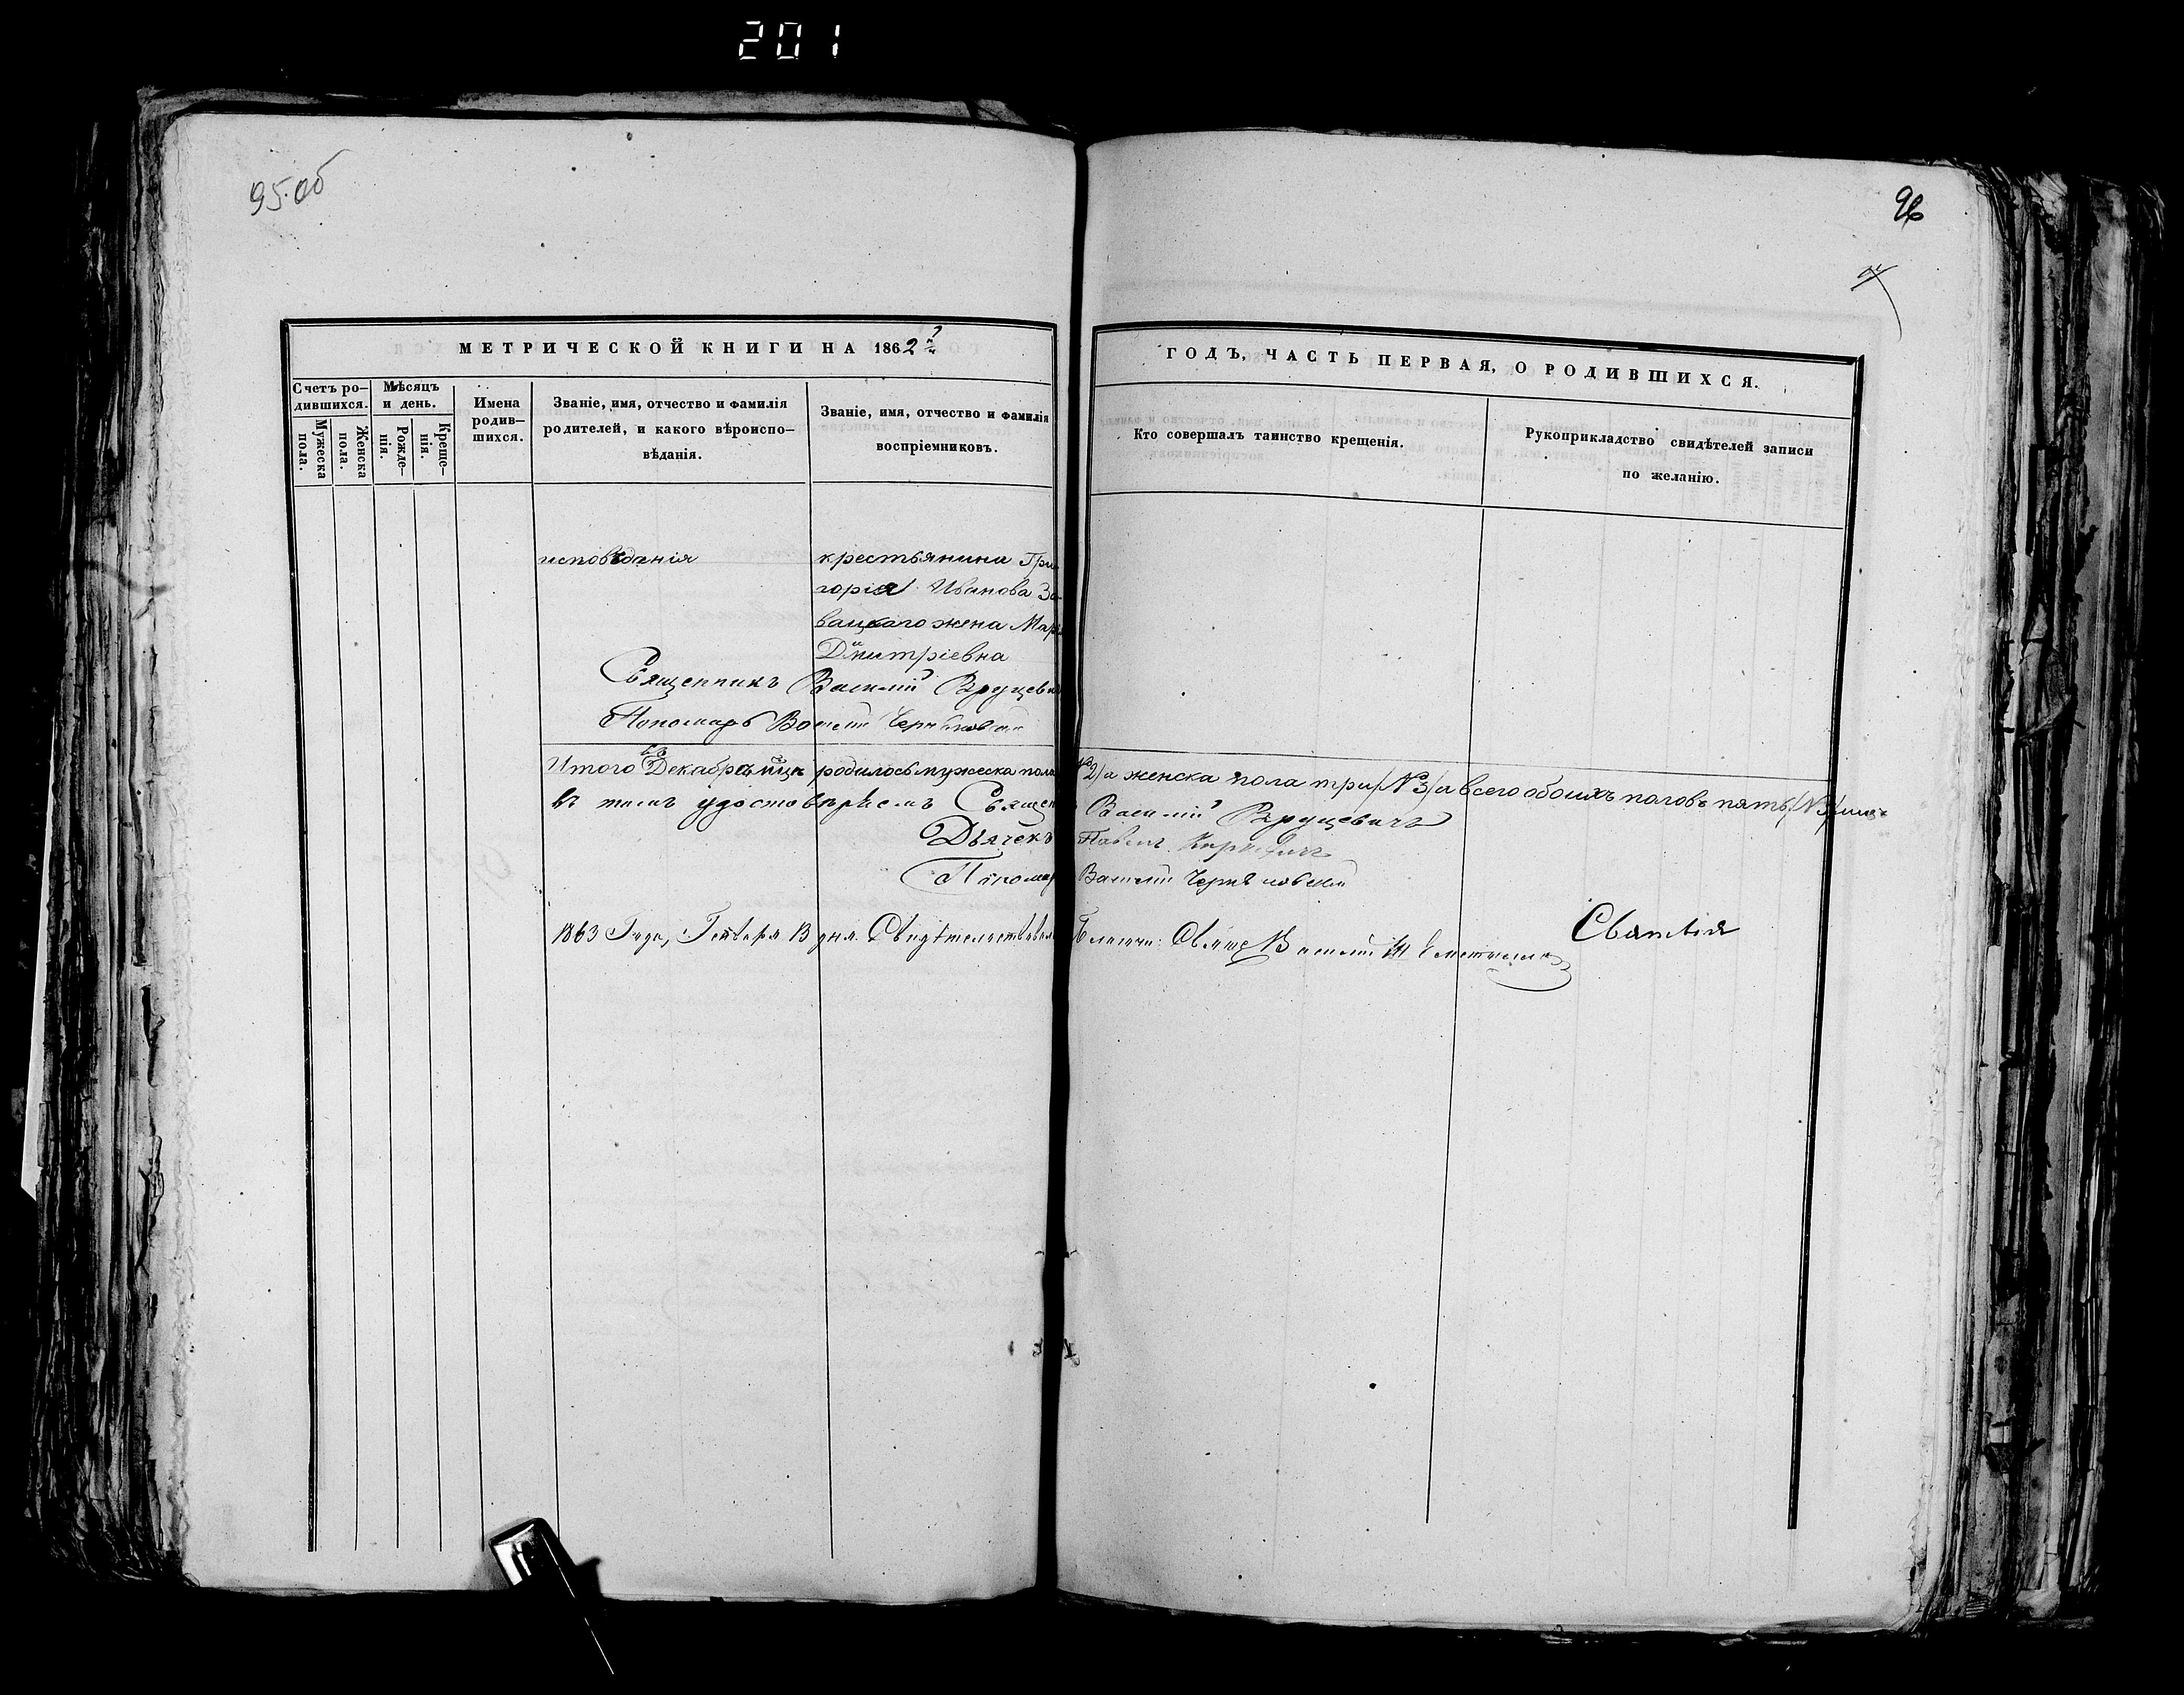 201
95.об
96
МЕТРИЧЕСКОЙ КНИГИ НА 1862
ГОДЪ, ЧАСТЬ ПЕРВАЯ, О РОДИВШИХСЯ.
Счетъ ро-
дившихся.
Мужеска
пола.
Женска
пола.
Мѣсяцъ
и день.
Рожде-
нія.
Креще-
нія.
Имена
родив-
шихся.
Званіе, имя, отчество и фамилія
родителей, и какого вѣроиспо-
вѣданія.
Званіе, имя, отчество и фамилія
воспріемниковъ.
Кто совершалъ таинство крещенія.
Рукоприкладство свидѣтелей записи
по желанію.
исповѣданія
крестьянина Гри
горія Иванова За-
вацкаго жена Марія
Дмитріевна
Священникъ Василій Вруцевичъ
Пономарь Василій
Итого въ Декабрѣ мцѣ родилось мужеска пола №2/а женска пола три/№3/а всего обоихъ половъ пять/№5/
въ томъ удостовѣряемъ Священ Василій Вруцевичъ
Дьячекъ Павелъ
Пономарь Василій
1863 Года, Генваря 13 дня. Свидѣтельствовалъ Благочи: Свящ Василій